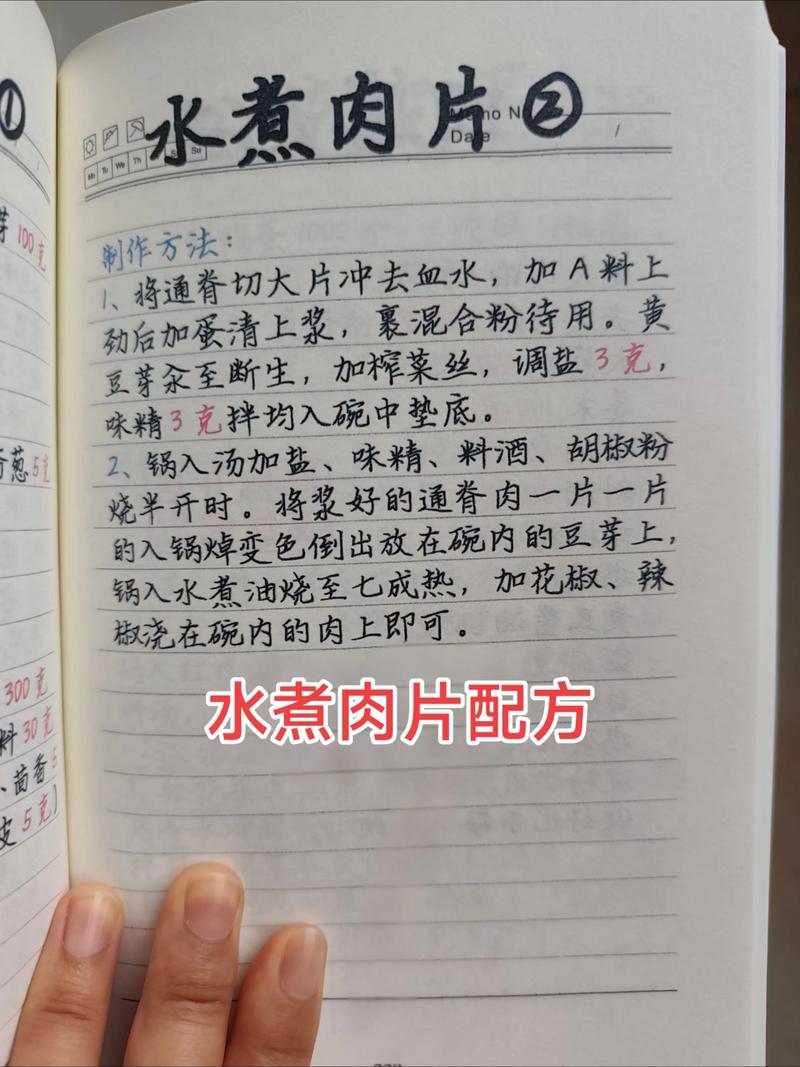 ①
芽100克
香葱5克
300克
料30克
、茴香5
皮5克)
水煮肉片②
Memo No
Date
Mo Tu We Th Su
制作方法:
1、将通脊切大片冲去血水,加A料上
劲后加蛋清上浆,裹混合粉待用。黄
豆芽汆至断生,加榨菜丝,调盐3克,
味精3克拌均入碗中垫底。
2、锅入汤加盐、味精、料酒、胡椒粉
烧半开时。将浆好的通脊肉一片一片
的入锅焯变色倒出放在碗内的豆芽上,
锅入水煮油烧至七成热,加花椒、辣
椒浇在碗内的肉上即可。
水煮肉片配方